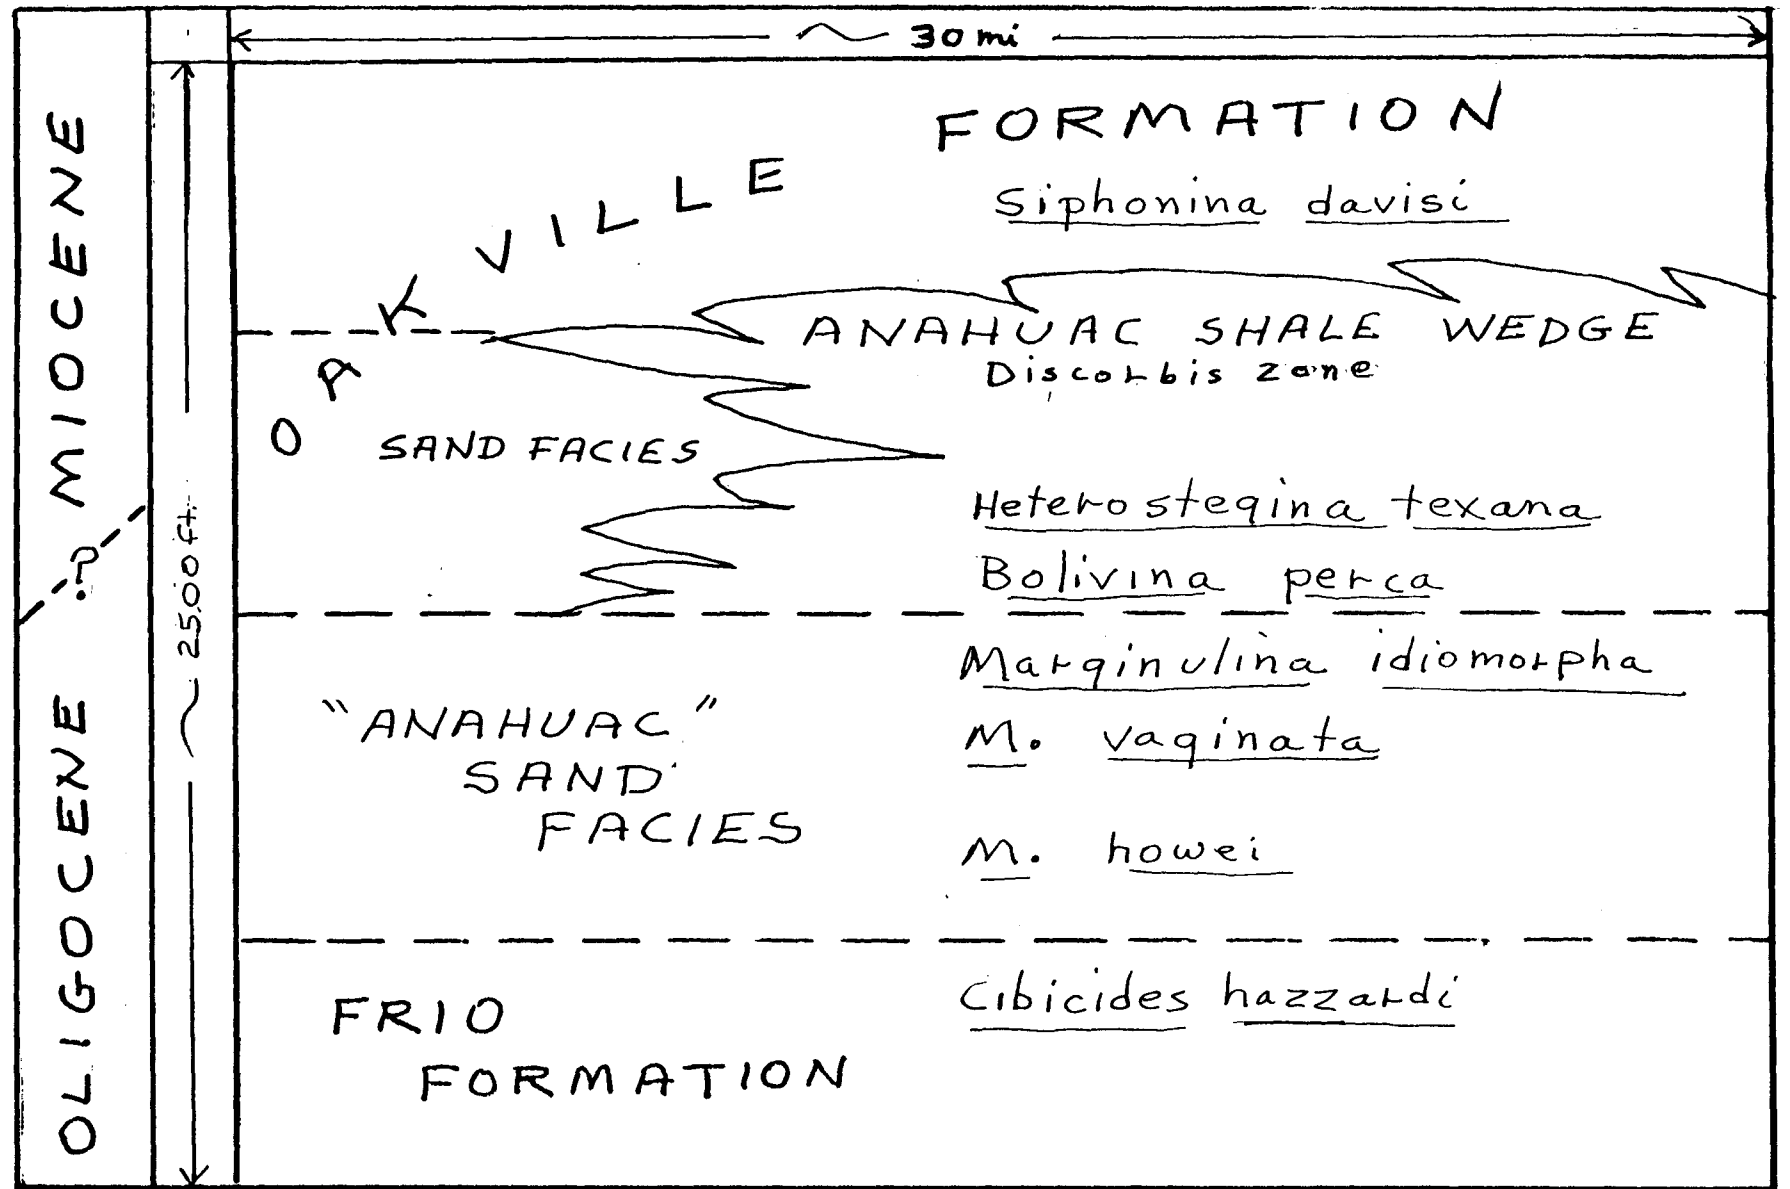 ~ 30 mi
MIOCENE
?
OLIGOCENE
~ 2500 ft.
OAKVILLE FORMATION
Siphonina davisi
ANAHUAC SHALE WEDGE
Discorbis zone
SAND FACIES
Heterostegina texana
Bolivina perca
Marginulina idiomorpha
"ANAHUAC"
SAND
FACIES
M. vaginata
M. howei
Cibicides hazzardi
FRIO
FORMATION